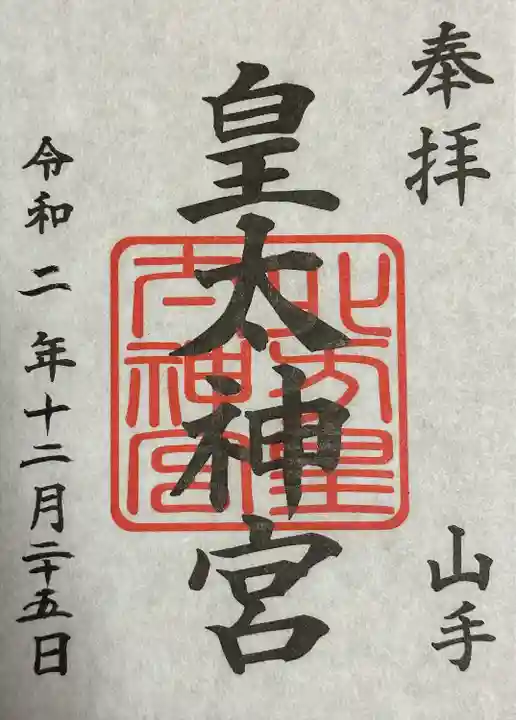 奉拝
山手
皇太神宮
北方皇
太神宮
令和二年十二月二十五日